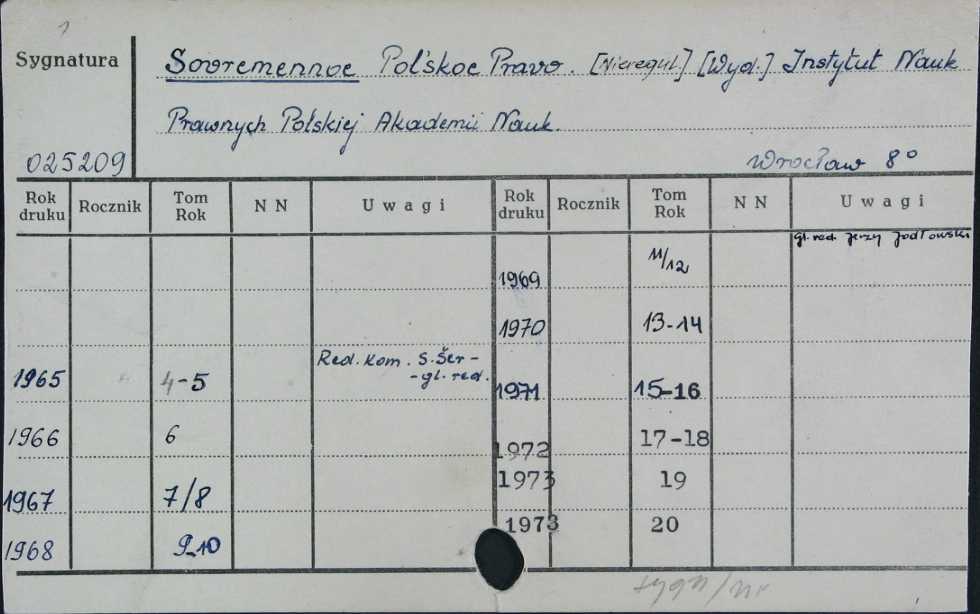 1
Sygnatura
Sovremennoe Pol'skoe Pravo. [Nieregul.] [Wyd.] Instytut Nauk
Prawnych Polskiej Akademii Nauk.
025209
Wrocław 8°
Rok druku Rocznik Tom Rok NN Uwagi Rok druku Rocznik Tom Rok NN Uwagi
gł. red. Jerzy Jodłowski
1969 11/12
1970 13-14
1965 4-5 Red. Kom. S. Šer -
- gl. red.
1971 15-16
1966 6
1972 17-18
1967 7/8
1973 19
1973 20
1968 9-10